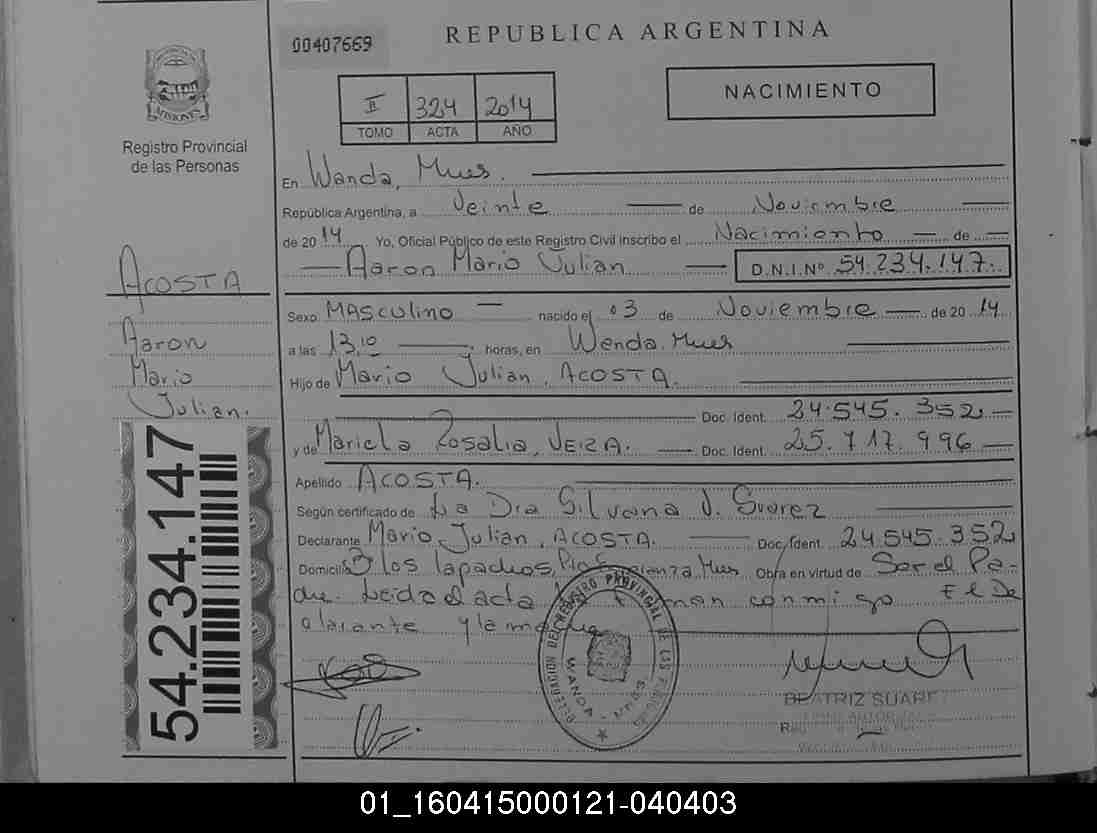 00407669
REPUBLICA ARGENTINA
MISIONES
Registro Provincial
de las Personas
II 324 2014
TOMO ACTA AÑO
NACIMIENTO
En Wanda, Mnes.
República Argentina, a Veinte de Noviembre
de 2014 Yo, Oficial Público de este Registro Civil inscribo el Nacimiento de
Aaron Mario Julian D.N.I.Nº 54.234.147.
ACOSTA
Aaron
Mario
Julian.
Sexo MASCulino nacido el 03 de Noviembre de 2014
a las 13,10 horas, en Wanda. Mnes
Hijo de Mario Julian, ACOSTA.
Doc. Ident. 24.545.352
y de Mariela Rosalia, VEIRA. Doc. Ident. 25.717.996
Apellido ACOSTA.
Según certificado de La Dra Silvana J. Suarez
Declarante Mario Julian, ACOSTA. Doc. Ident. 24.545.352
Domicilio los lapachos, Mnes Obra en virtud de Ser el Pa-
dre. Leida el acta conmigo El De
clarante y la madre
54.234.147
DELEGACION DEL REGISTRO PROVINCIAL DE LAS PERSONAS
WANDA - MNES.
BEATRIZ SUAREZ
01_160415000121-040403